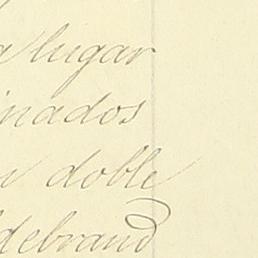 a lugar
inados
n doble
ldebrand